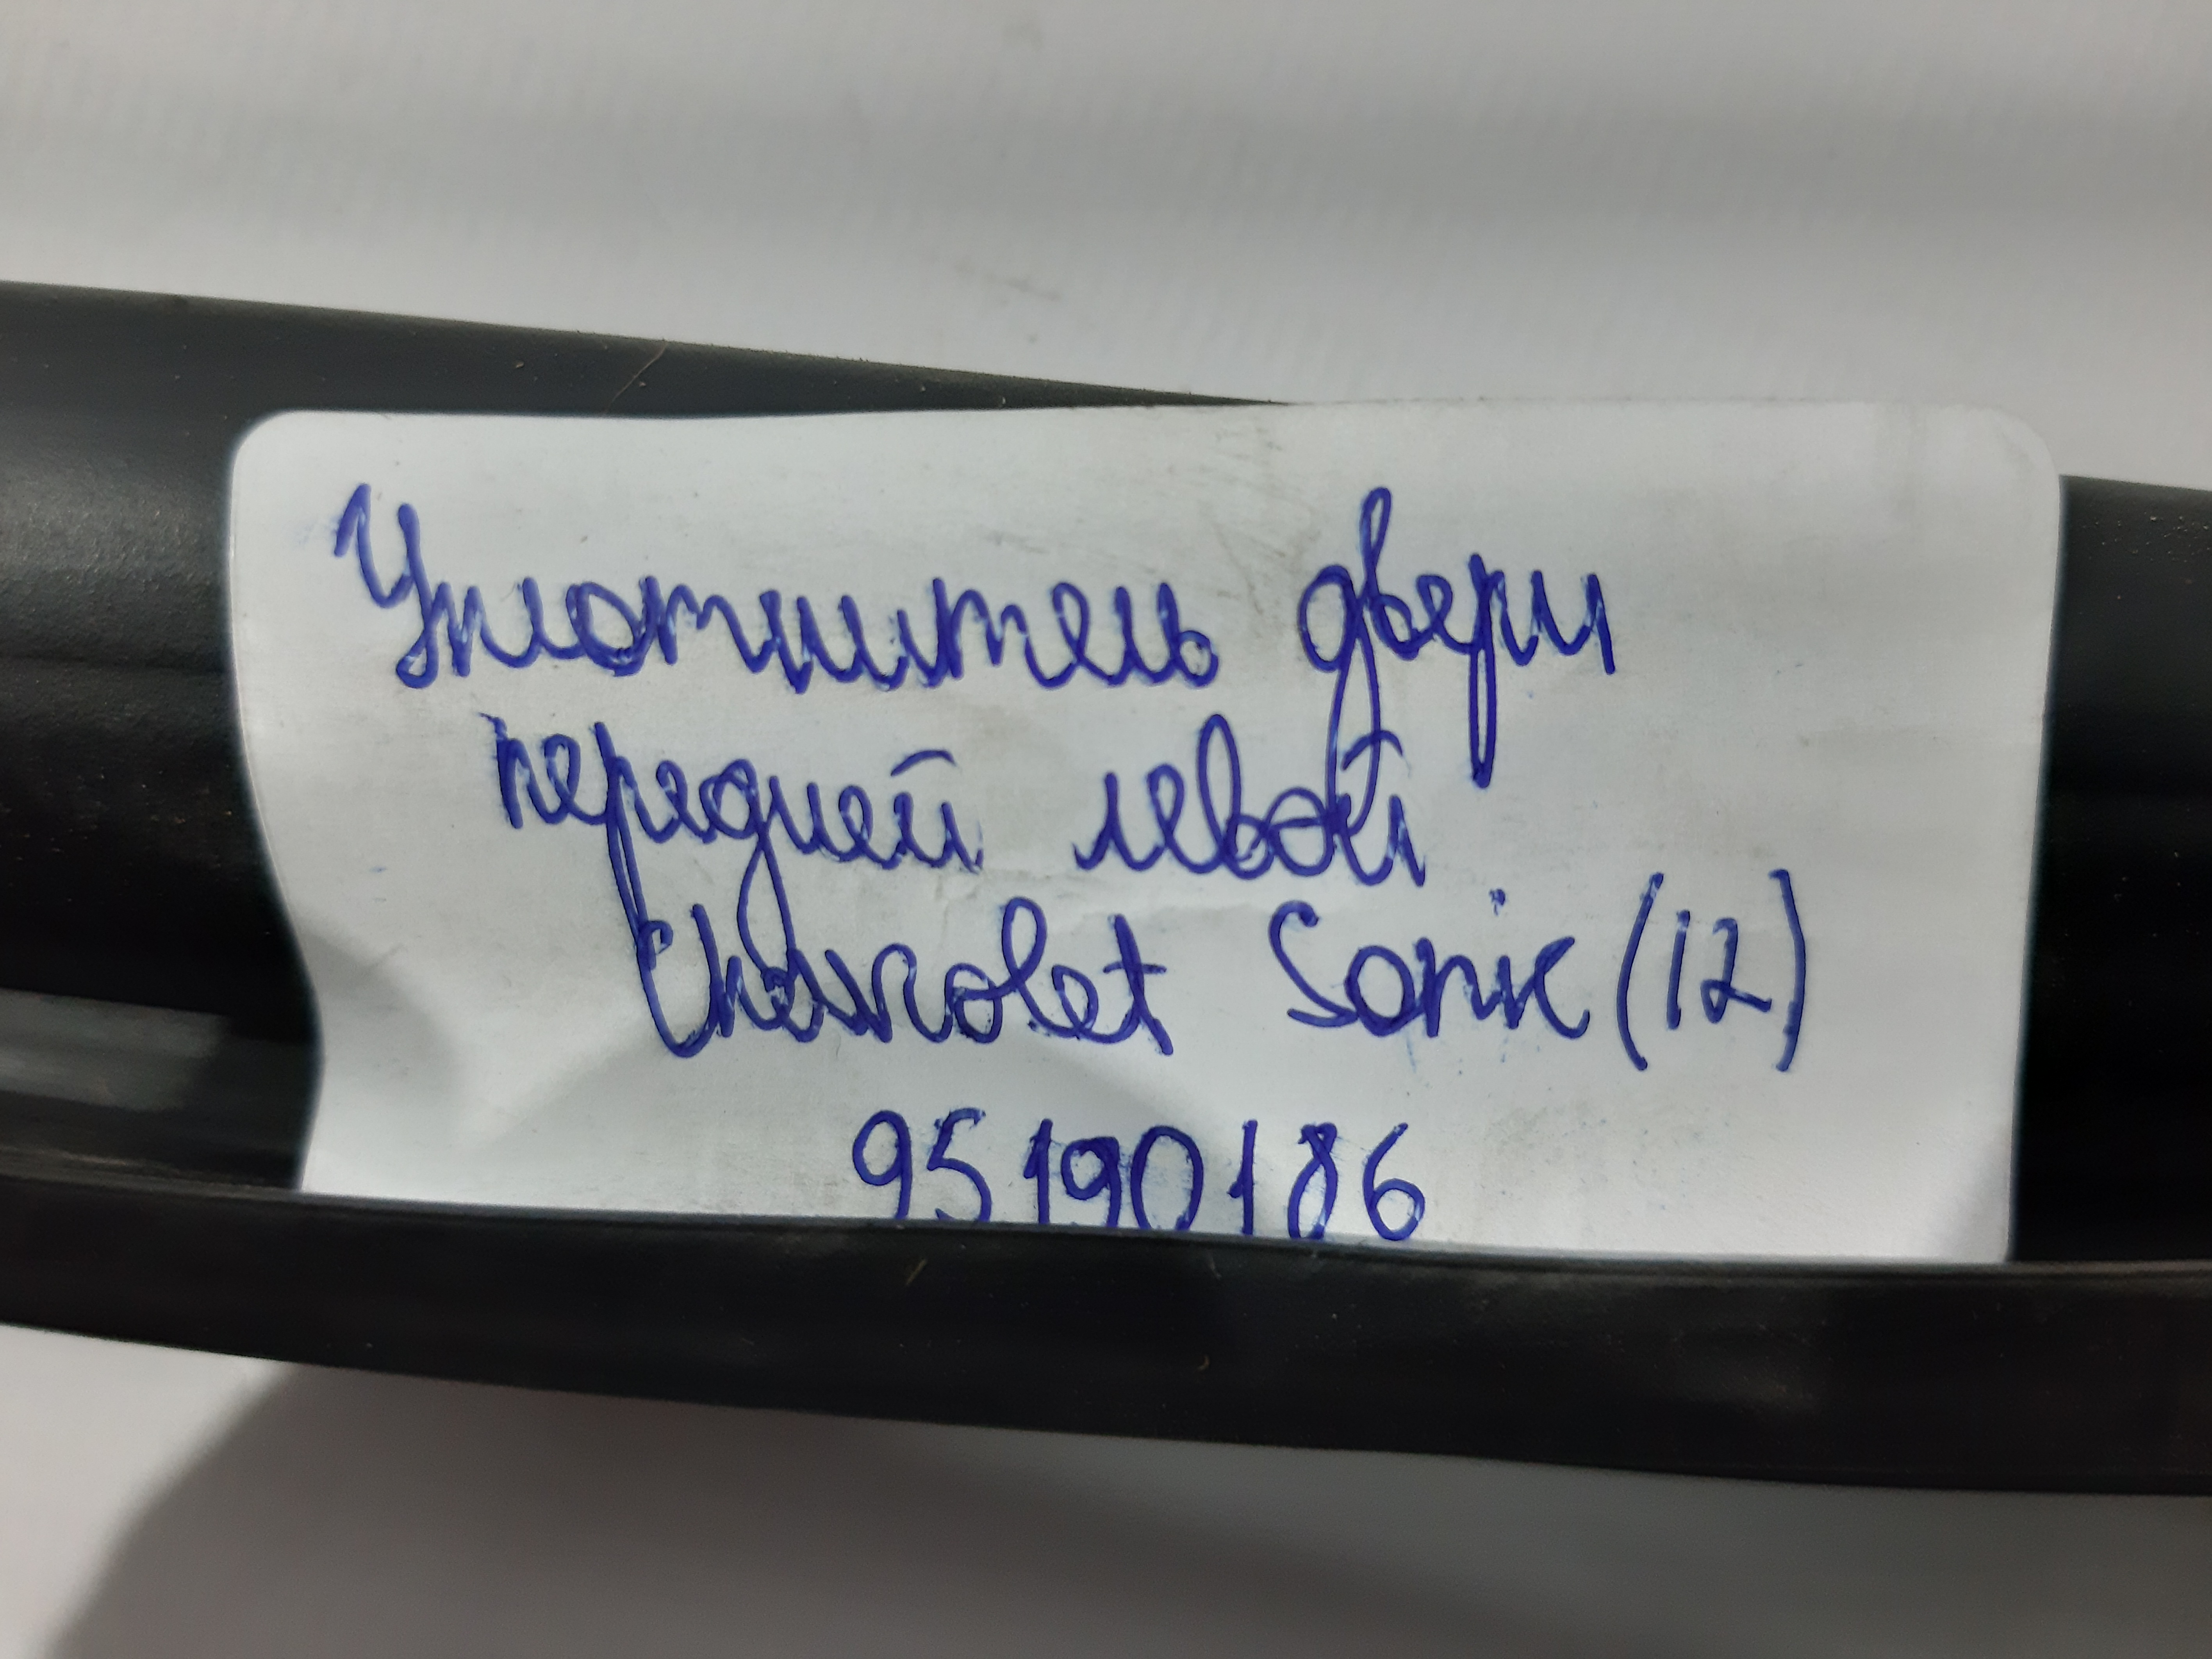 Уплотнитель двери
передней левой
Chevrolet Sonic (12)
95190186